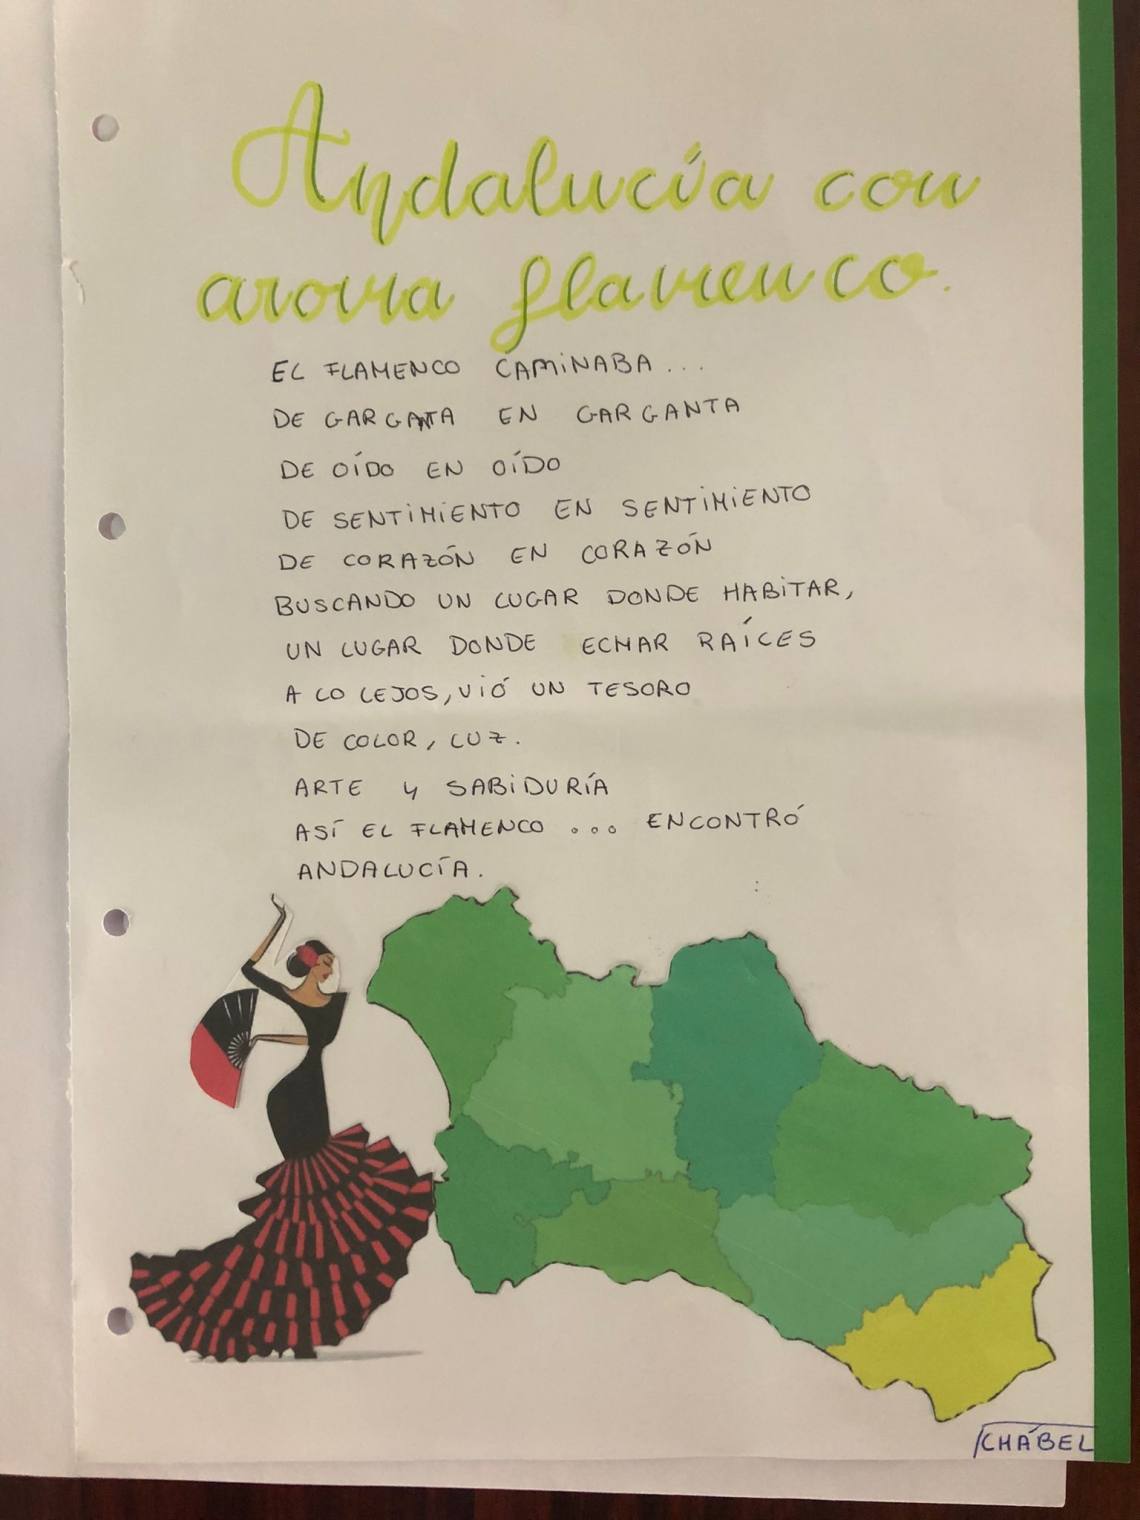 Andalucía con
aroma flamenco.
EL FLAMENCO CAMINABA...
DE GARGANTA EN GARGANTA
DE OÍDO EN OÍDO
DE SENTIMIENTO EN SENTIMIENTO
DE CORAZÓN EN CORAZÓN
BUSCANDO UN LUGAR DONDE HABITAR,
UN LUGAR DONDE ECHAR RAÍCES
A LO LEJOS, VIÓ UN TESORO
DE COLOR, LUZ.
ARTE Y SABIDURÍA
ASÍ EL FLAMENCO ... ENCONTRÓ
ANDALUCÍA.
CHÁBEL